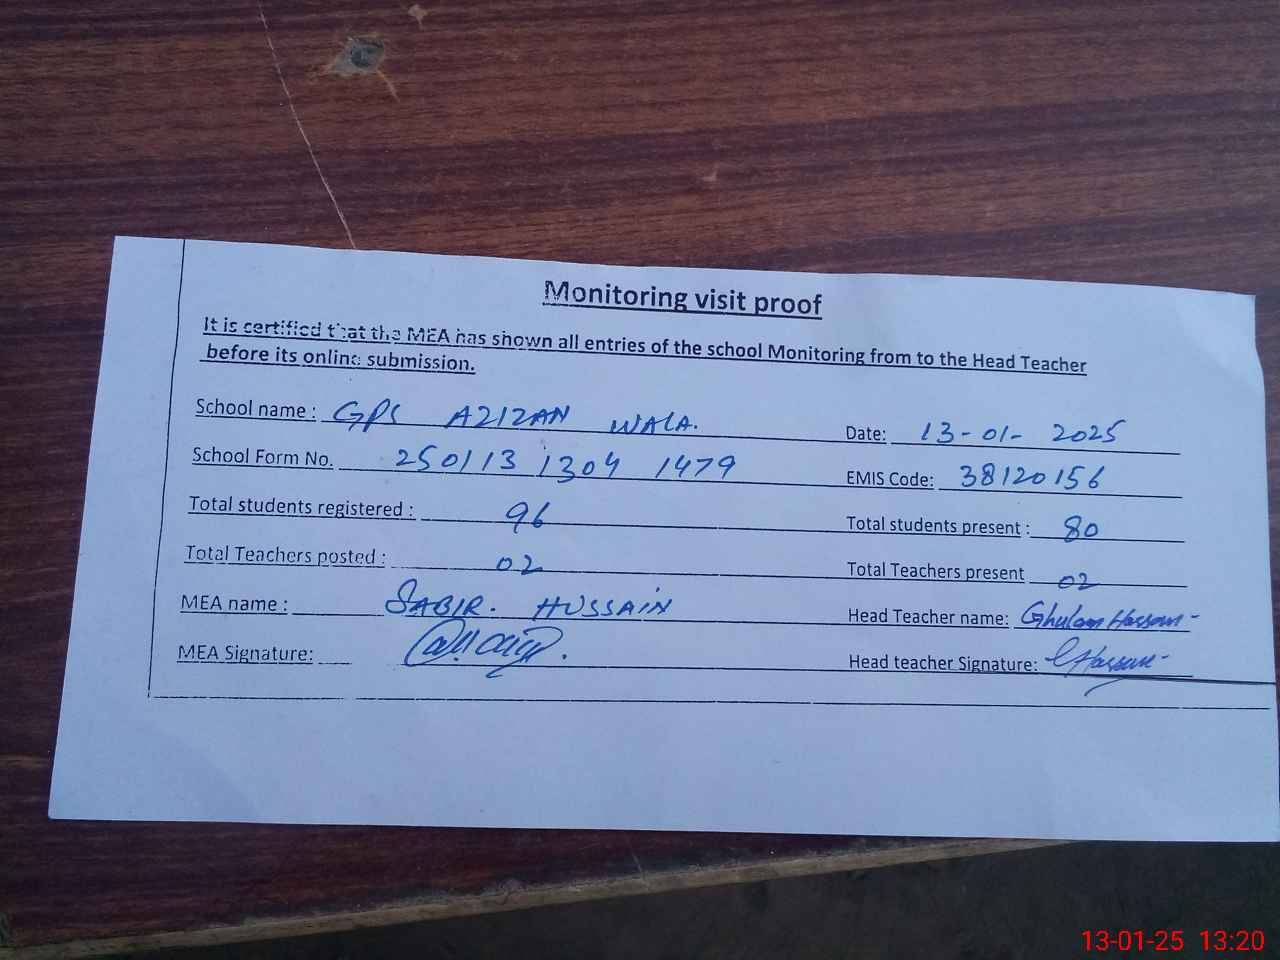 Monitoring visit proof
It is certified that the MEA has shown all entries of the school Monitoring from to the Head Teacher
before its online submission.
School name : GPS AZIZAN WALA. Date: 13-01-2025
School Form No. 250113 1304 1479 EMIS Code: 38120156
Total students registered : 96 Total students present : 80
Total Teachers posted : 02 Total Teachers present 02
MEA name : SABIR. HUSSAIN Head Teacher name: Ghulam Hassan
MEA Signature: Head teacher Signature: GHassan
13-01-25 13:20